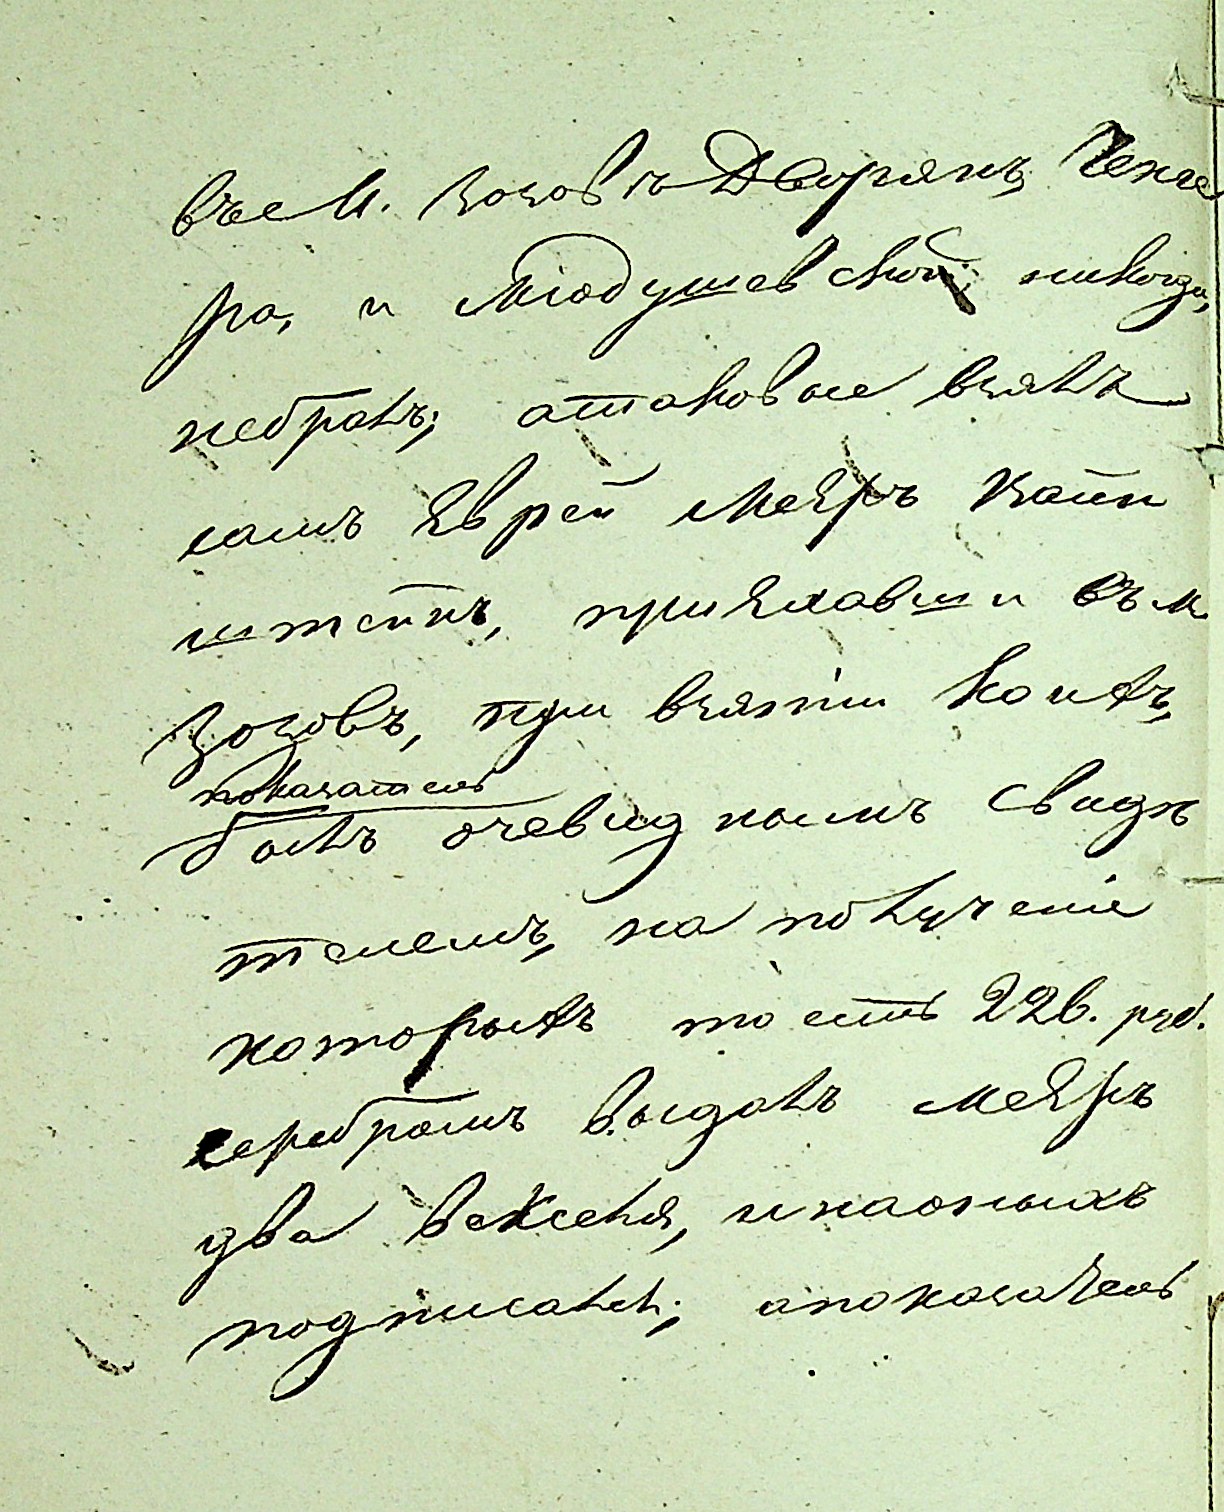 въ М. Зозовъ Дворянъ Ченге
ра, и Мiодушевской никогда,
небралъ; атаковые взялъ
самъ Еврей Меѣръ Вайн
штейнъ, приѣхавши въ м
Зозовъ, при взятiи коихъ,
показатель
былъ очевиднымъ свидѣ
телемъ, на полученiе
которыхъ то есть 226. руб.
серебромъ выдалъ Меѣръ
два векселя, и наоныхъ
подписалсь; апоказатель